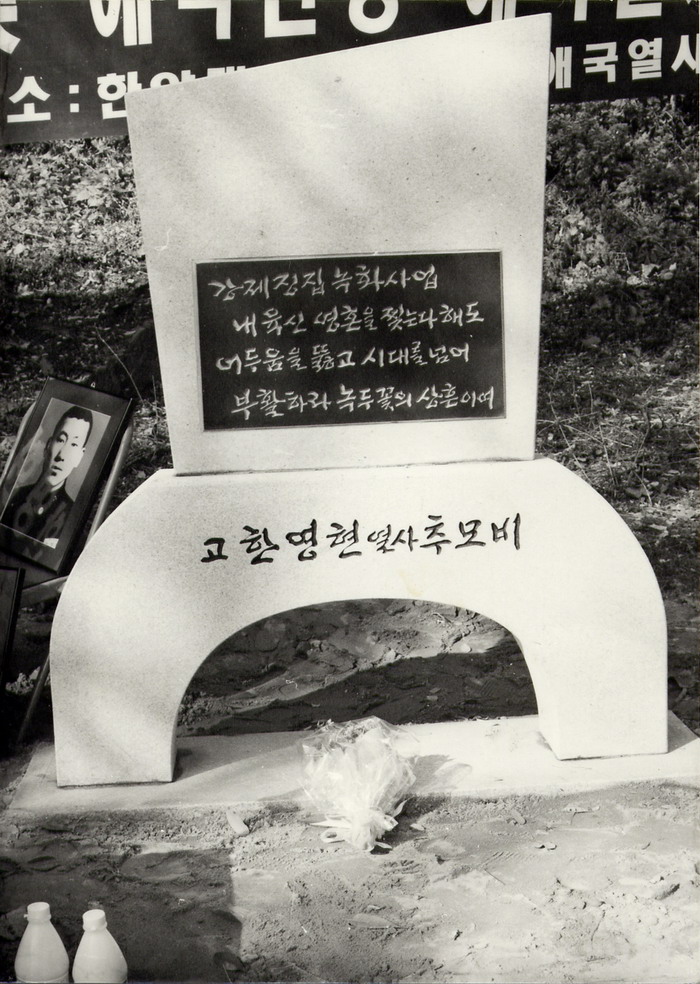 애국
소 : 한양
애국열사
강제징집 녹화사업
내 육신 영혼을 찢는다 해도
어두움을 뚫고 시대를 넘어
부활하라 녹두꽃의 상흔이여
고 한영현 열사 추모비